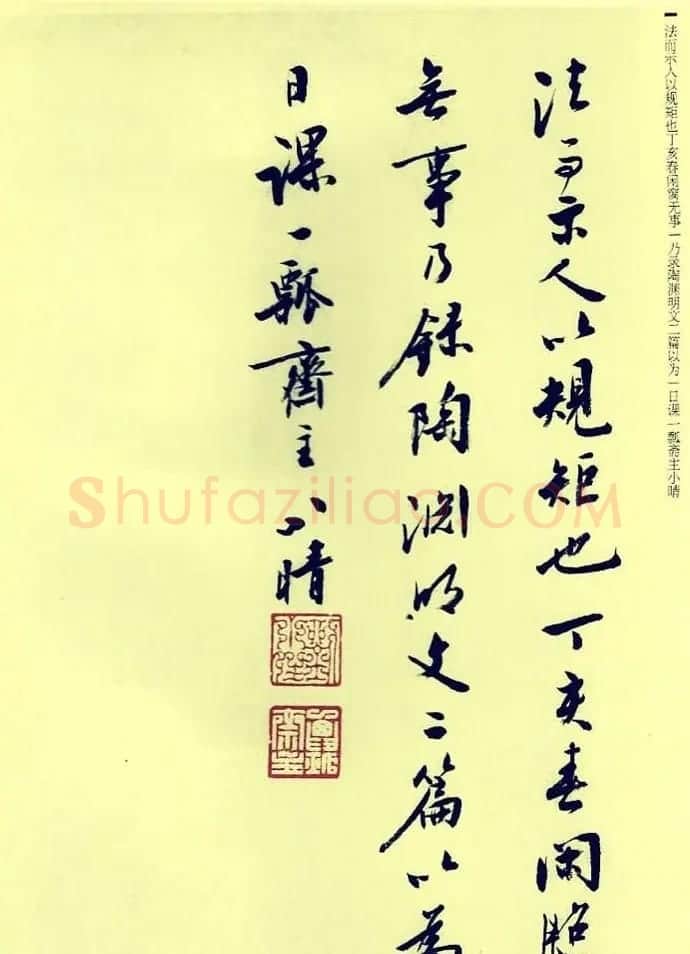 法而示人以规矩也丁亥春闲窝无事一乃录陶渊明文二篇以为一日课一瓢斋主小晴
法而示人以規矩也丁亥春閑
無事乃録陶淵明文二篇以為
日課一瓢齋主小晴
Shufaziliao.COM